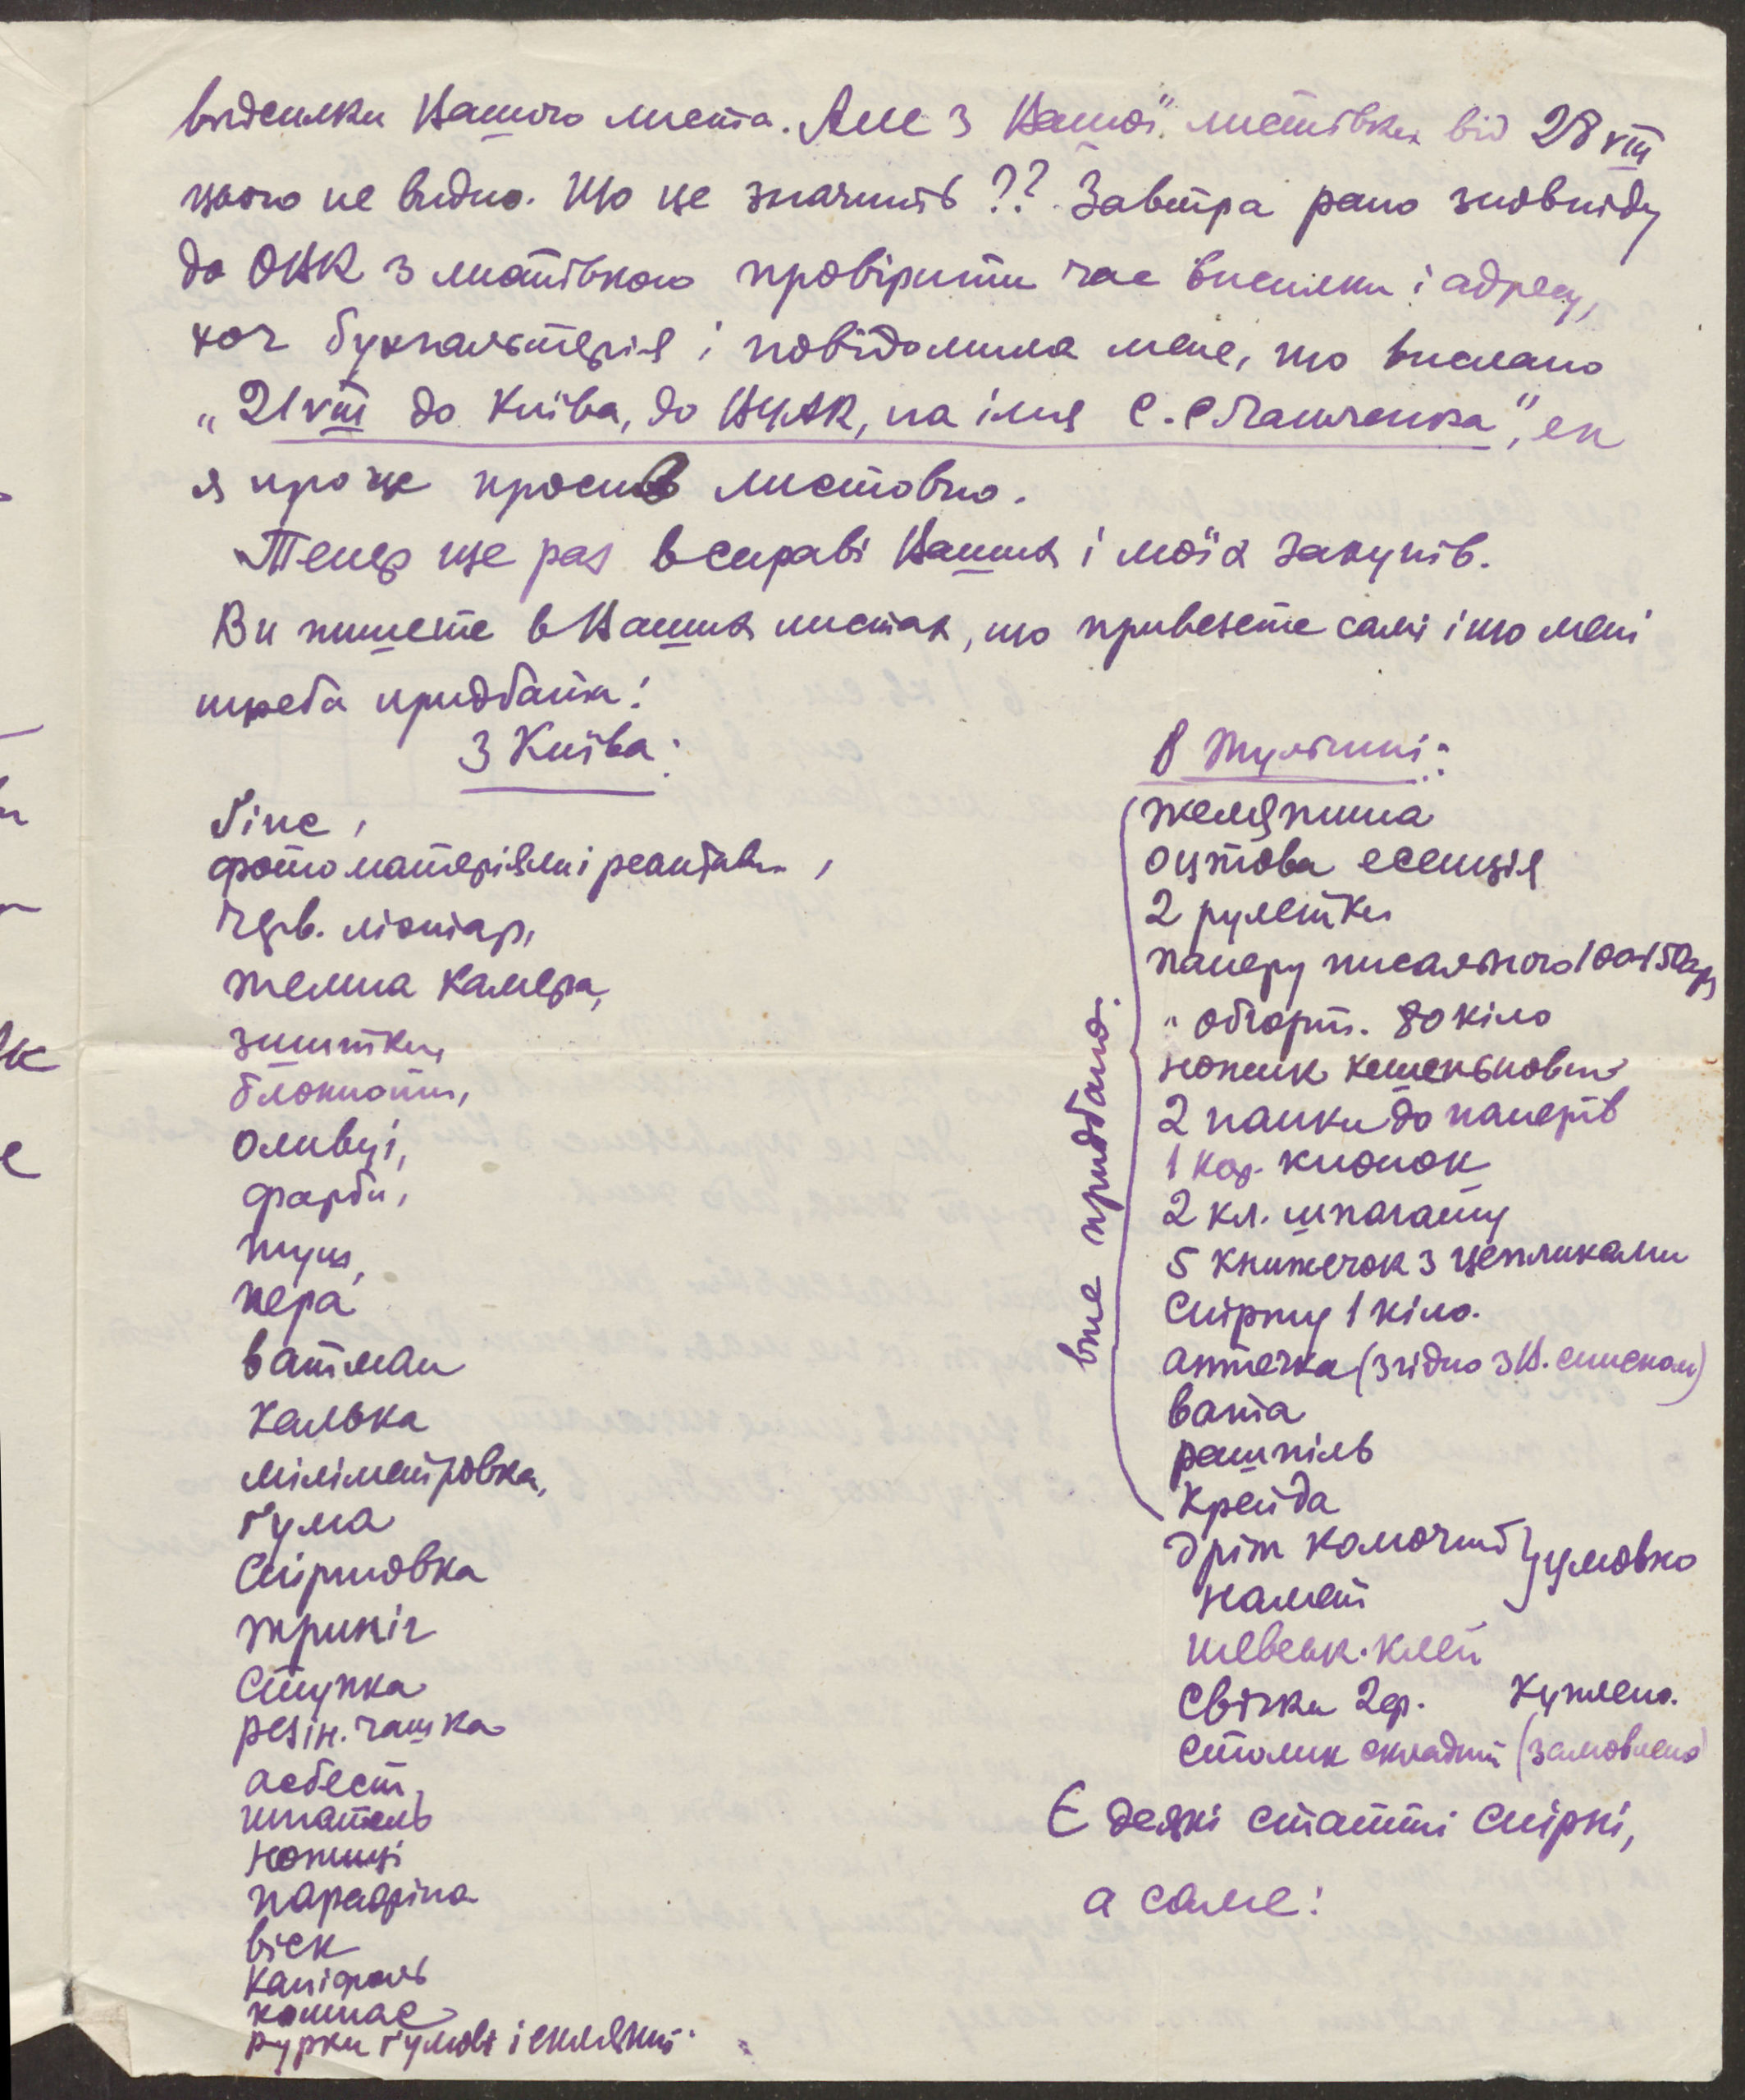 висилки Вашого листа. Але з Вашої листівки від 28 VIII
цього не видно. Що це значить?? Завтра рано знов піду
до ОВК з листівкою провірити час висилки і адресу,
хоч бухгальтерія і повідомила мене, що вислано
„21 VIII до Київа, до ВУАК, на імя С. С Магаченка",
я про це просив листовно.
Тепер ще раз в справі Ваших і моїх закупів.
Ви пишете в Ваших листах, що привезете самі і що мені
треба придбати:
З Київа:
Гіпс,
фотоматеріяли і реактиви,
черв. ліхтар,
темна камера,
зшитки,
блокноти,
оливці,
фарби,
туш,
пера
ватман
калька
міліметровка,
ґума
спіртовка
триніг
ступка
резін. чашка
асбест,
шпатель
ножиці
парафіна
віск
каніфоль
компас
рурки ґумові і скляні
В Тульчині:
желятина
оцтова есенція
2 рулетки
паперу писального 100-150 ар
" обгорт. 80 кіло
ножик кешеньковий
2 папки до паперів
1 кор. кнопок
2 кл. шпагату
5 книжечок з цепликами
Спірту 1 кіло.
аптечка (згідно з В. списком)
вата
рашпіль
крейда
вже придбано.
дріт колючий } умовно
намет
шевськ. клей
Свічки 2 ф. куплено.
Столик складний (замовлено)
Є деякі статті спірні,
а саме: